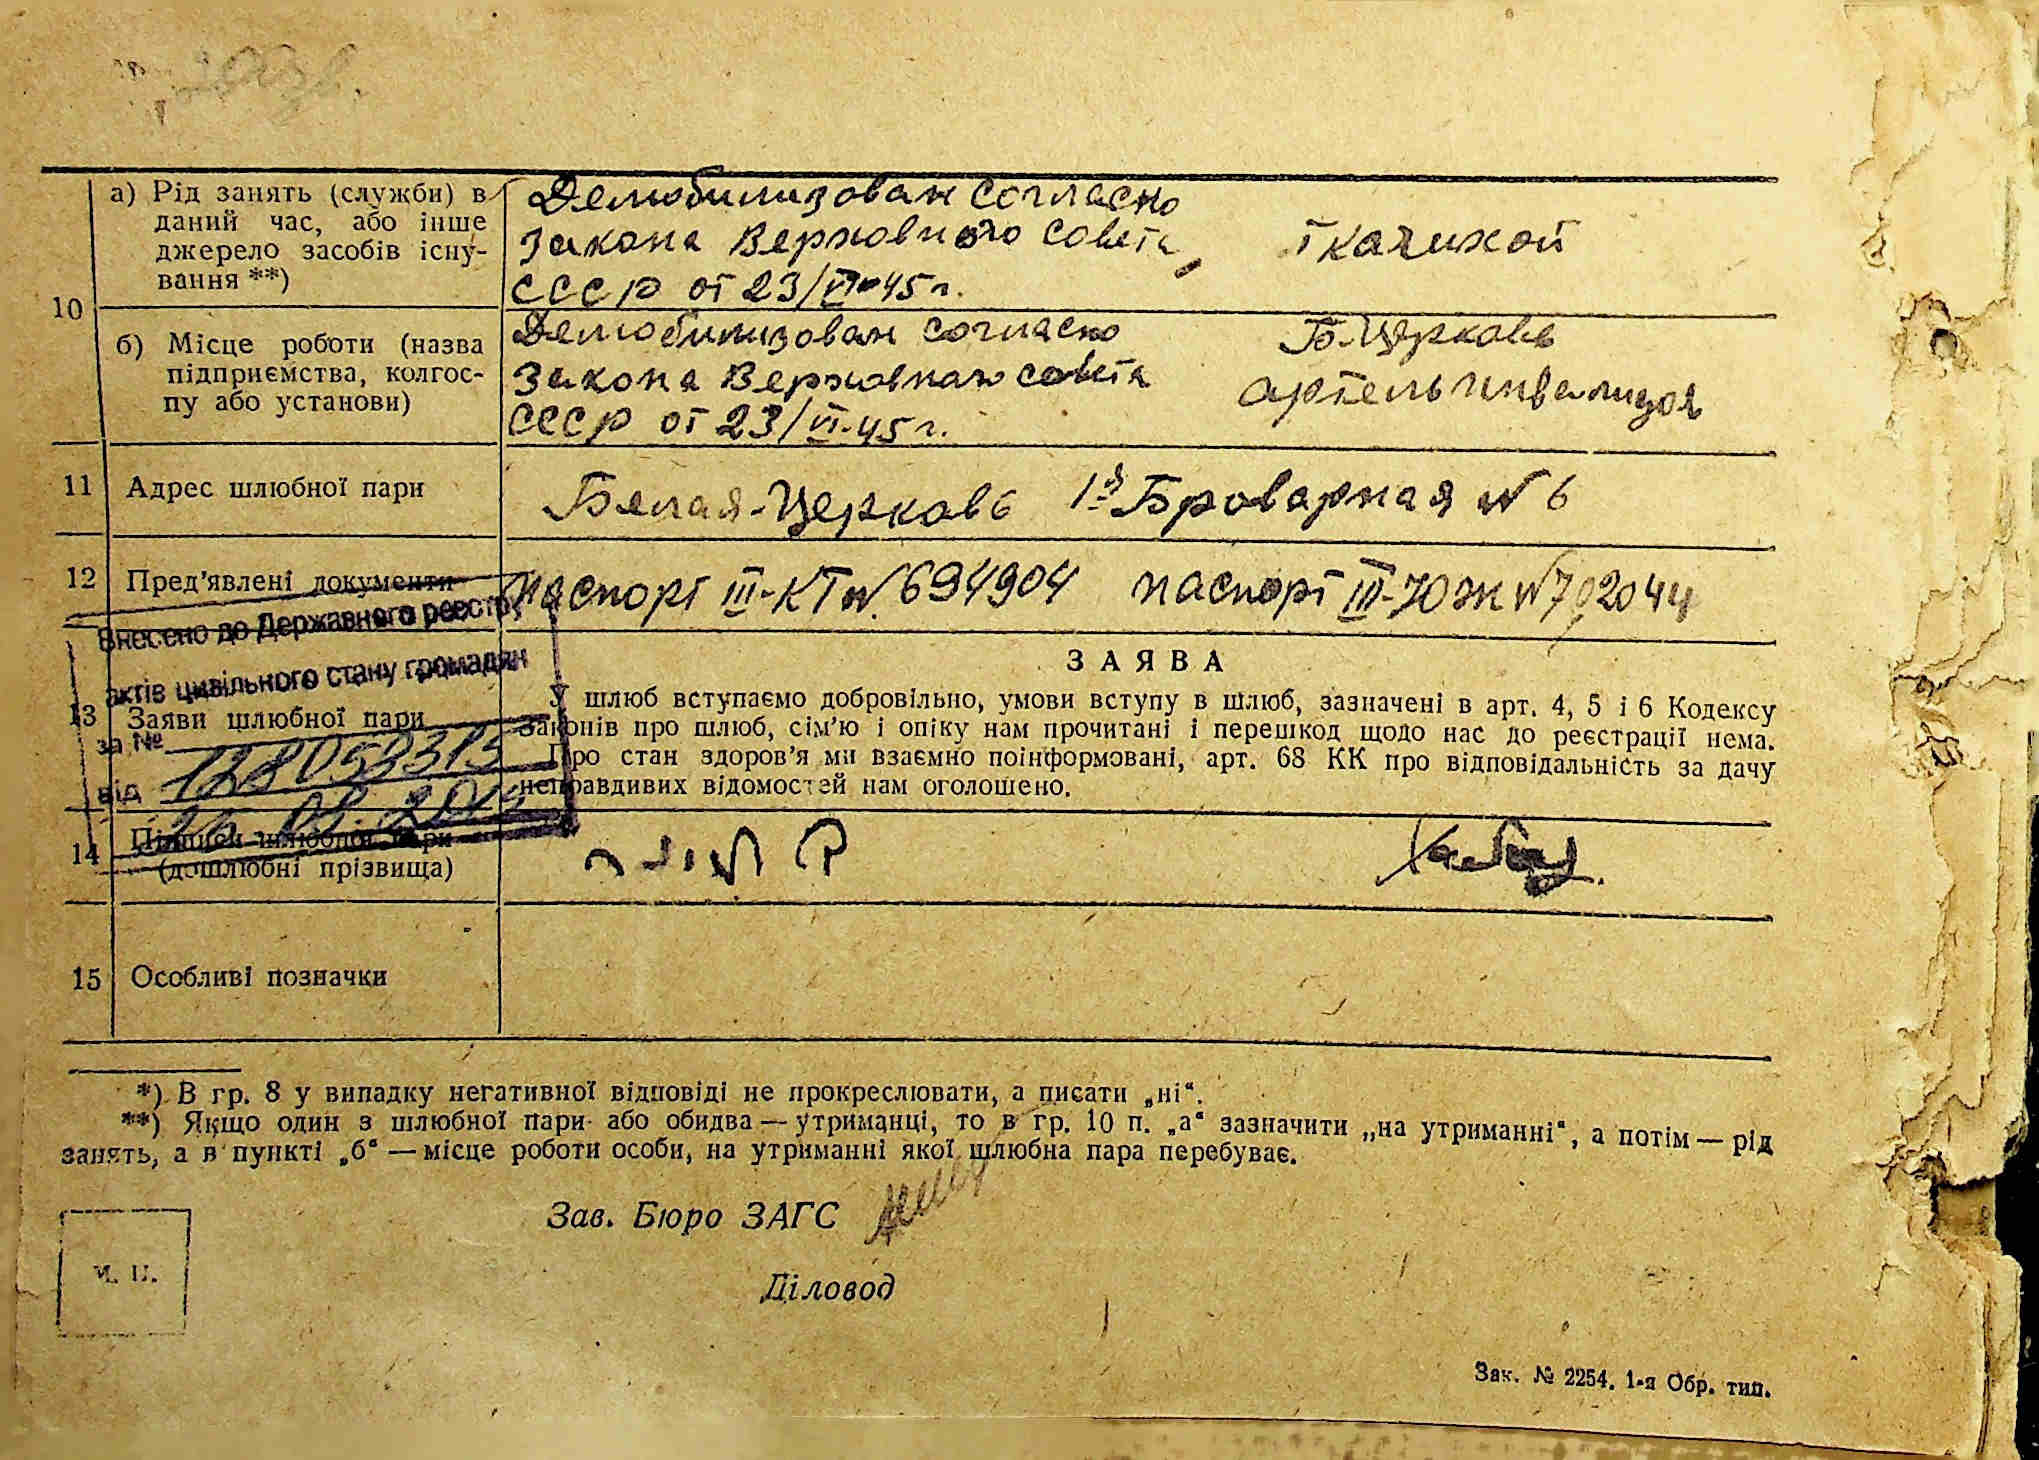 10
а) Рід занять (служби) в
даний час, або інше
джерело засобів існу-
вання **)
Демобилизован согласно
Закона Верховного совета
СССР от 23/VI-45 г.
Ткачихой
б) Місце роботи (назва
підприємства, колгос-
пу або установи)
Демобилизован согласно
Закона Верховного совета
СССР от 23/VI-45 г.
Б-Церковь
артель инвалидов
11 Адрес шлюбної пари
Белая-Церковь 1я Броварная № 6
12 Пред’явлені документи
паспорт III-КТ №. 694904 паспорт III-ЮЖ № 702044
Внесено до Державного реєстру
актів цивільного стану громадян
за №
від
13 Заяви шлюбної пари
ЗАЯВА
У шлюб вступаємо добровільно, умови вступу в шлюб, зазначені в арт. 4, 5 і 6 Кодексу
законів про шлюб, сім’ю і опіку нам прочитані і перешкод щодо нас до реєстрації нема.
Про стан здоров’я ми взаємно поінформовані, арт. 68 КК про відповідальність за дачу
неправдивих відомостей нам оголошено.
14 Підписи шлюбної пари
(дошлюбні прізвища)
15 Особливі позначки
*) В гр. 8 у випадку негативної відповіді не прокреслювати, а писати „ні“.
**) Якщо один з шлюбної пари або обидва — утриманці, то в гр. 10 п. „а“ зазначити „на утриманні“, а потім — рід
занять, а в пункті „б“ — місце роботи особи, на утриманні якої шлюбна пара перебуває.
Зав. Бюро ЗАГС
М. П.
Діловод
Зак. № 2254. 1-я Обр. тип.